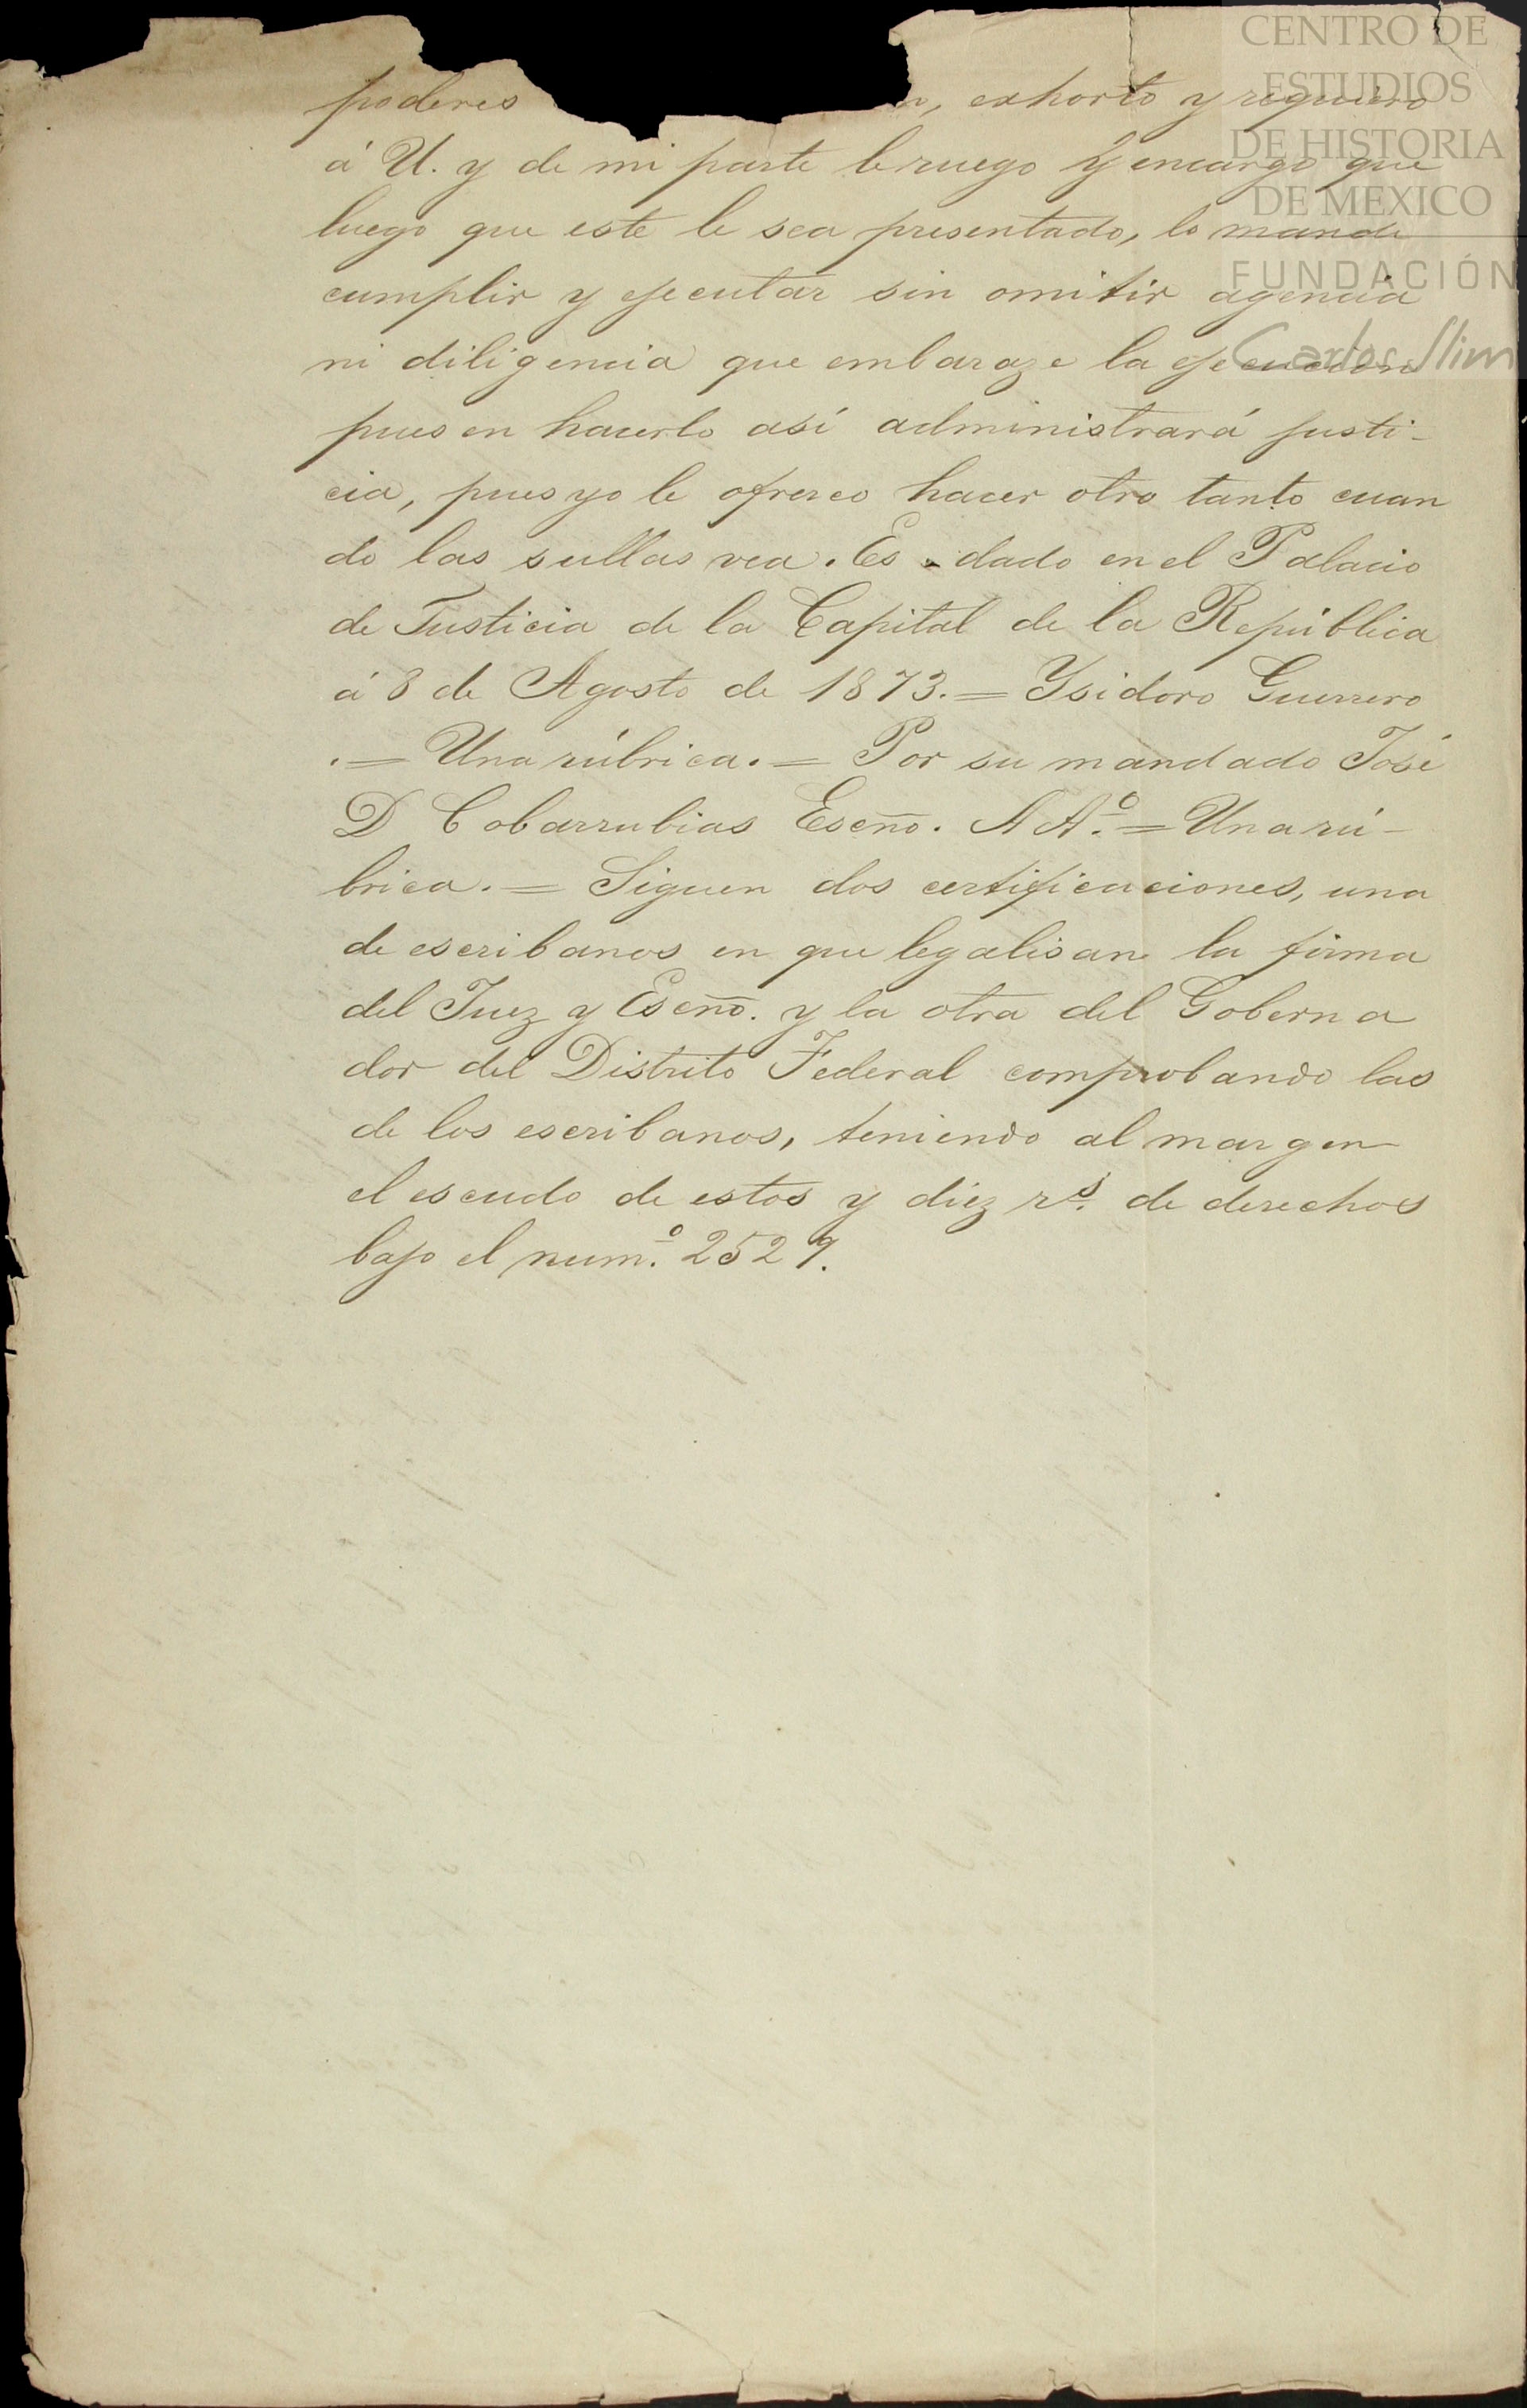 CENTRO DE
ESTUDIOS
DE HISTORIA
DE MEXICO
FUNDACIÓN
Carlos Slim
poderes n, exhorto y requiero
á U. y de mi parte le ruego y encargo que
luego que este le sea presentado, lo mande
cumplir y ejecutar sin omitir agencia
ni diligencia que embaraze la ejecucion
pues en hacerlo así administrará justi-
cia, pues yo le ofresco hacer otro tanto cuan
do las sullas vea. Es dado en el Palacio
de Justicia de la Capital de la República
á 8 de Agosto de 1873.= Ysidoro Guerrero
.= Una rúbrica.= Por su mandado José
D Cobarrubias Escño. AAº.= Una rú-
brica.= Siguen dos certificaciones, una
de escribanos en que legalisan la firma
del Juez y Escño. y la otra del Goberna
dor del Distrito Federal comprobando las
de los escribanos, teniendo al margen
el escudo de estos y diez rs. de derechos
bajo el numº. 2529.